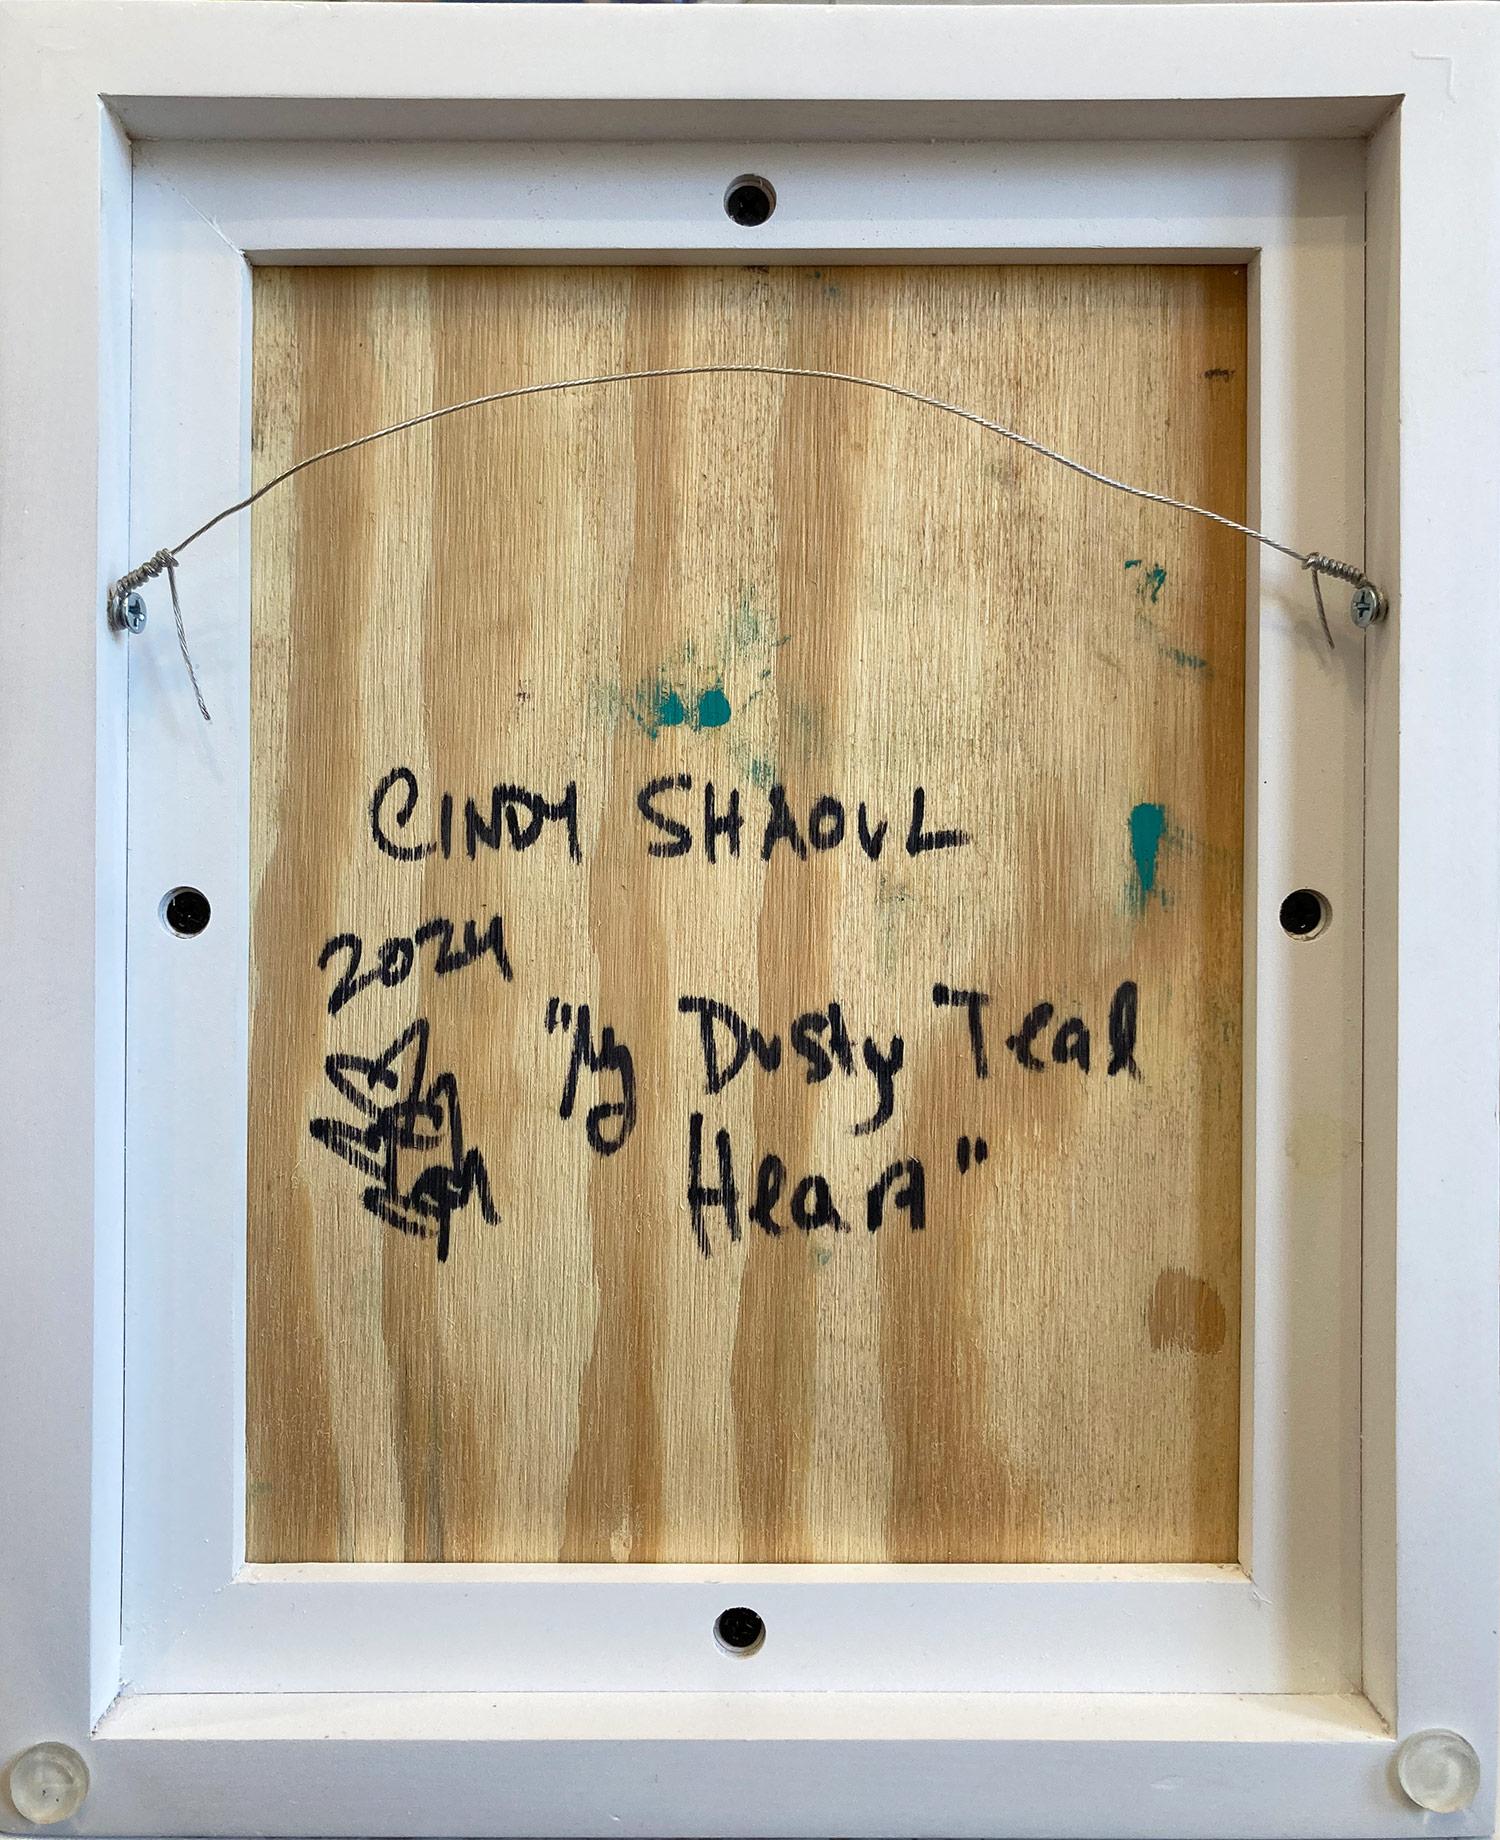 CINDY SHAOUL
2024
"My Dusty Teal
Heart"